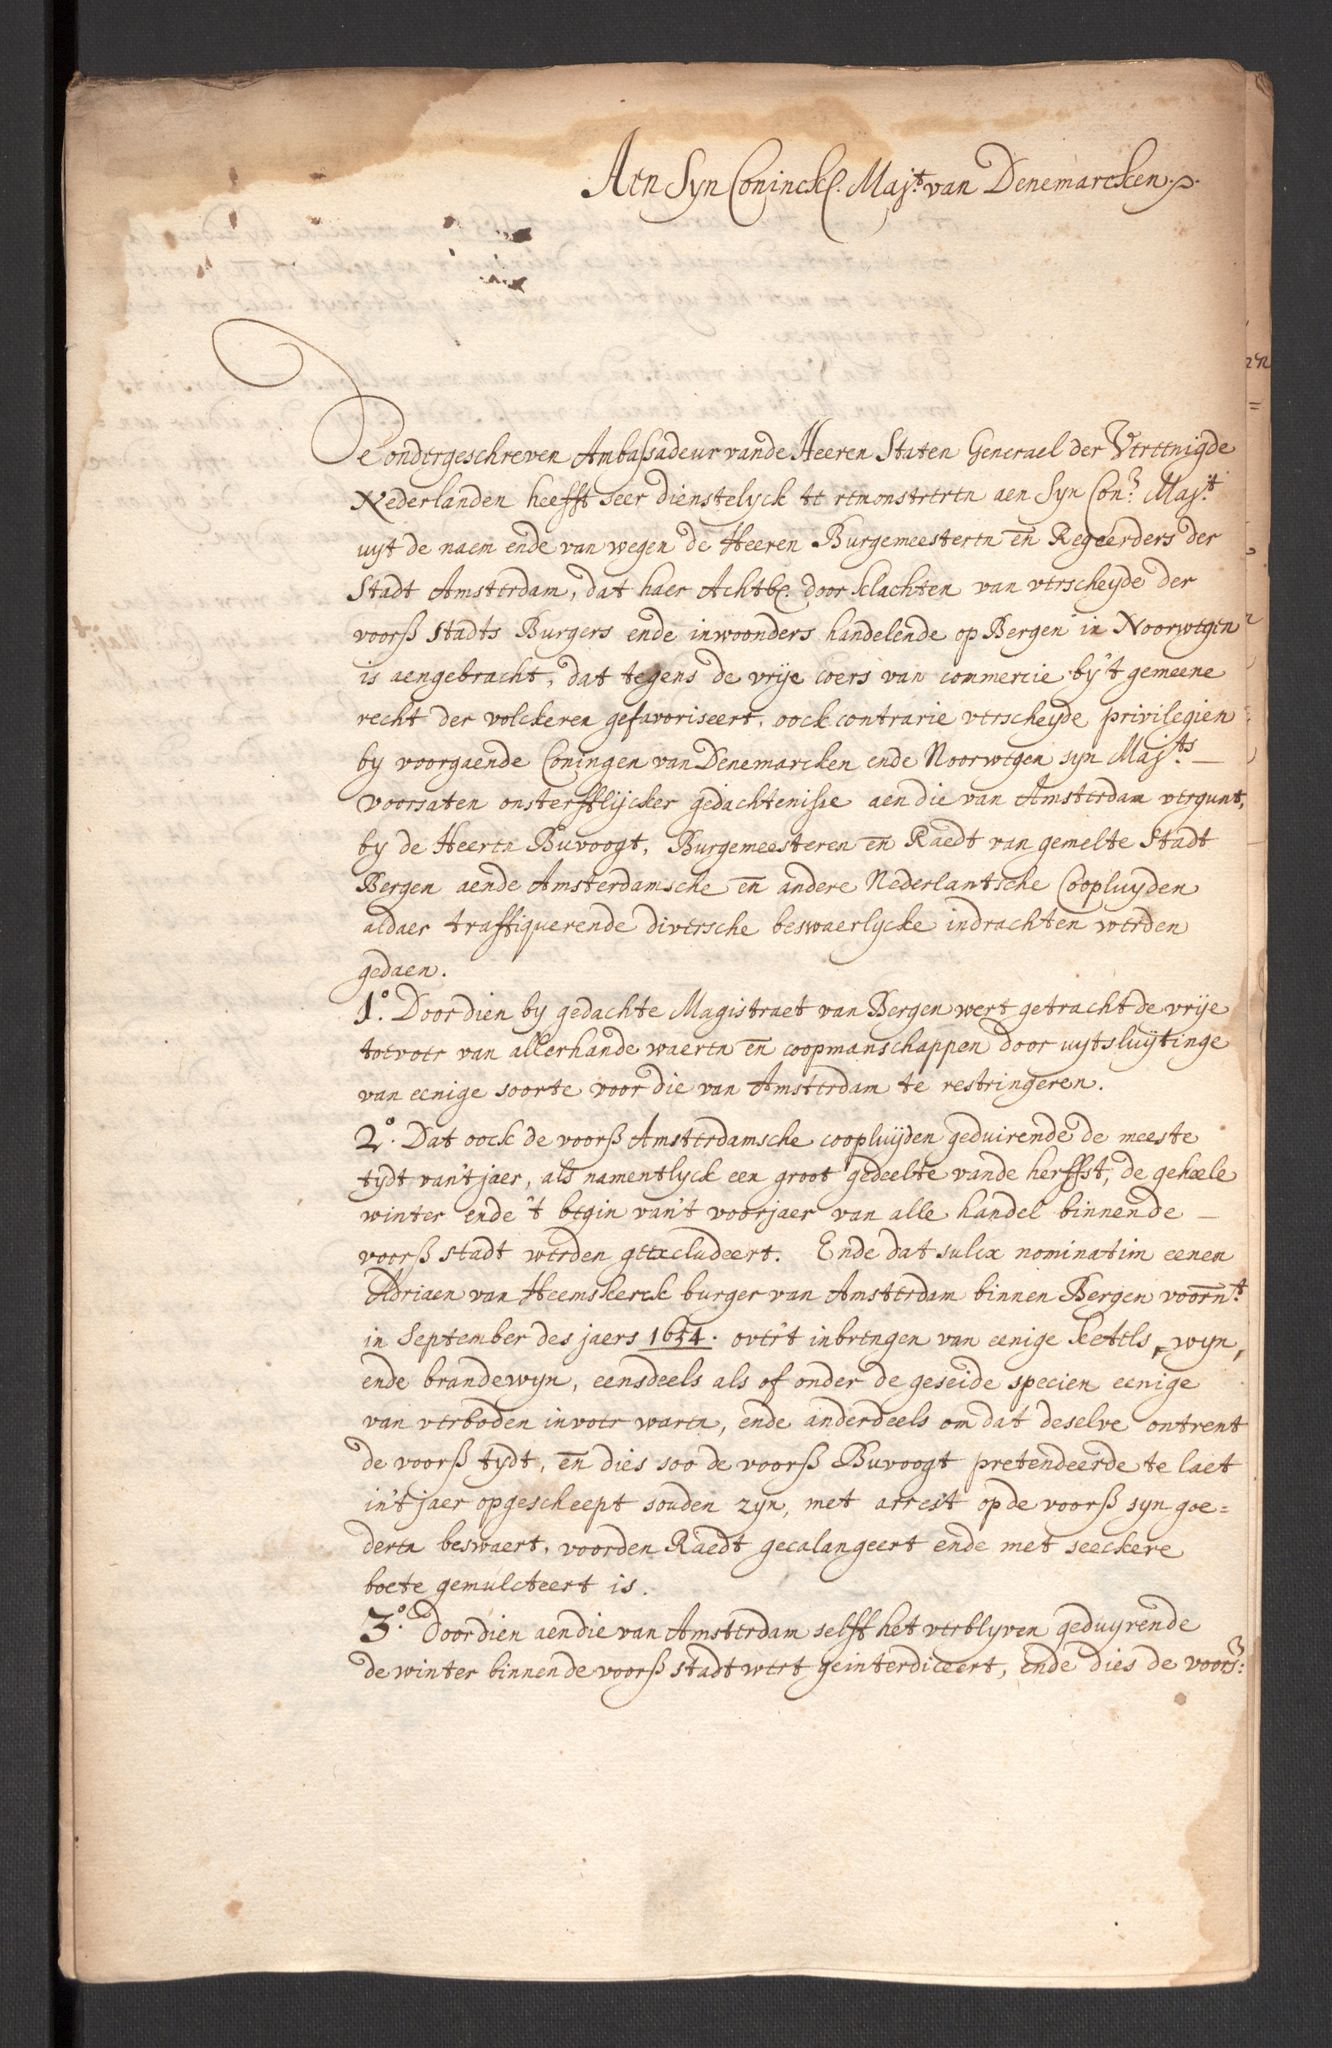 Aen Syn Coninckl. Maj.t van Denemarcken.
De ondergeschreven Ambassadeur vande Heeren Staten Generael der Vereenigde
Nederlanden heefft seer dienstelyck te remonstreren aen Syn Con. Maj.t
uyt de naem ende van wegen de Heeren Burgemeesteren en Regeerders der
Stadt Amsterdam, dat haer Achtb. door klachten van verscheyde der
voorß Stadts Burgers ende inwoonders handelende op Bergen in Noorwegen
is aengebracht, dat tegens de vrije coers van commercie by 't gemeene
recht der volckeren gefavoriseert, oock contrarie verscheyde privilegien
by voorgaende Coningen van Denemarcken ende Noorwegen syn Maj.ts
voorsaten onsterfflijcker gedachtenisse aen die van Amsterdam vergunt,
by de Heeren Buvoogt, Burgemeesteren en Raedt van gemelte Stadt
Bergen aende Amsterdamsche en andere Nederlantsche Coopluyden
aldaer traffiquerende diversche beswaerlycke indrachten werden
gedaen.
1.o Doordien by gedachte Magistraet van Bergen wert getracht de vrije
toevoer van allerhande waeren en coopmanschappen door uytsluijtinge
van eenige soorte voor die van Amsterdam te restringeren.
2.o Dat oock de voorß Amsterdamsche coopluijden geduirende de meeste
tydt van't jaer, als namentlyck een groot gedeelte vande herffst, de geheele
winter ende 't begin van't voorjaer van alle handel binnende
voorß stadt werden geexcludeert. Ende dat sulcx nominatim eenen
Adriaen van Heemskerck burger van Amsterdam binnen Bergen voorn.t
in September des jaers 1654. over't inbrengen van eenige keetels, wyn,
ende brandewyn, eensdeels als of onder de geseide specien eenige
van verboden invoer waren, ende anderdeels om dat deselve ontrent
de voorß tydt, en dies soo de voorß Buvoogt pretendeerde te laet
in't jaer opgescheept souden zyn, met arrest op de voorß syn goe=
deren beswaert, voorden Raedt gecalangeert ende met seeckere
boete gemulcteert is.
3.o Doordien aen die van Amsterdam selfft het verblyven geduyrende
de winter binnende voorß stadt wert geinterdiceert, ende dies de voors: